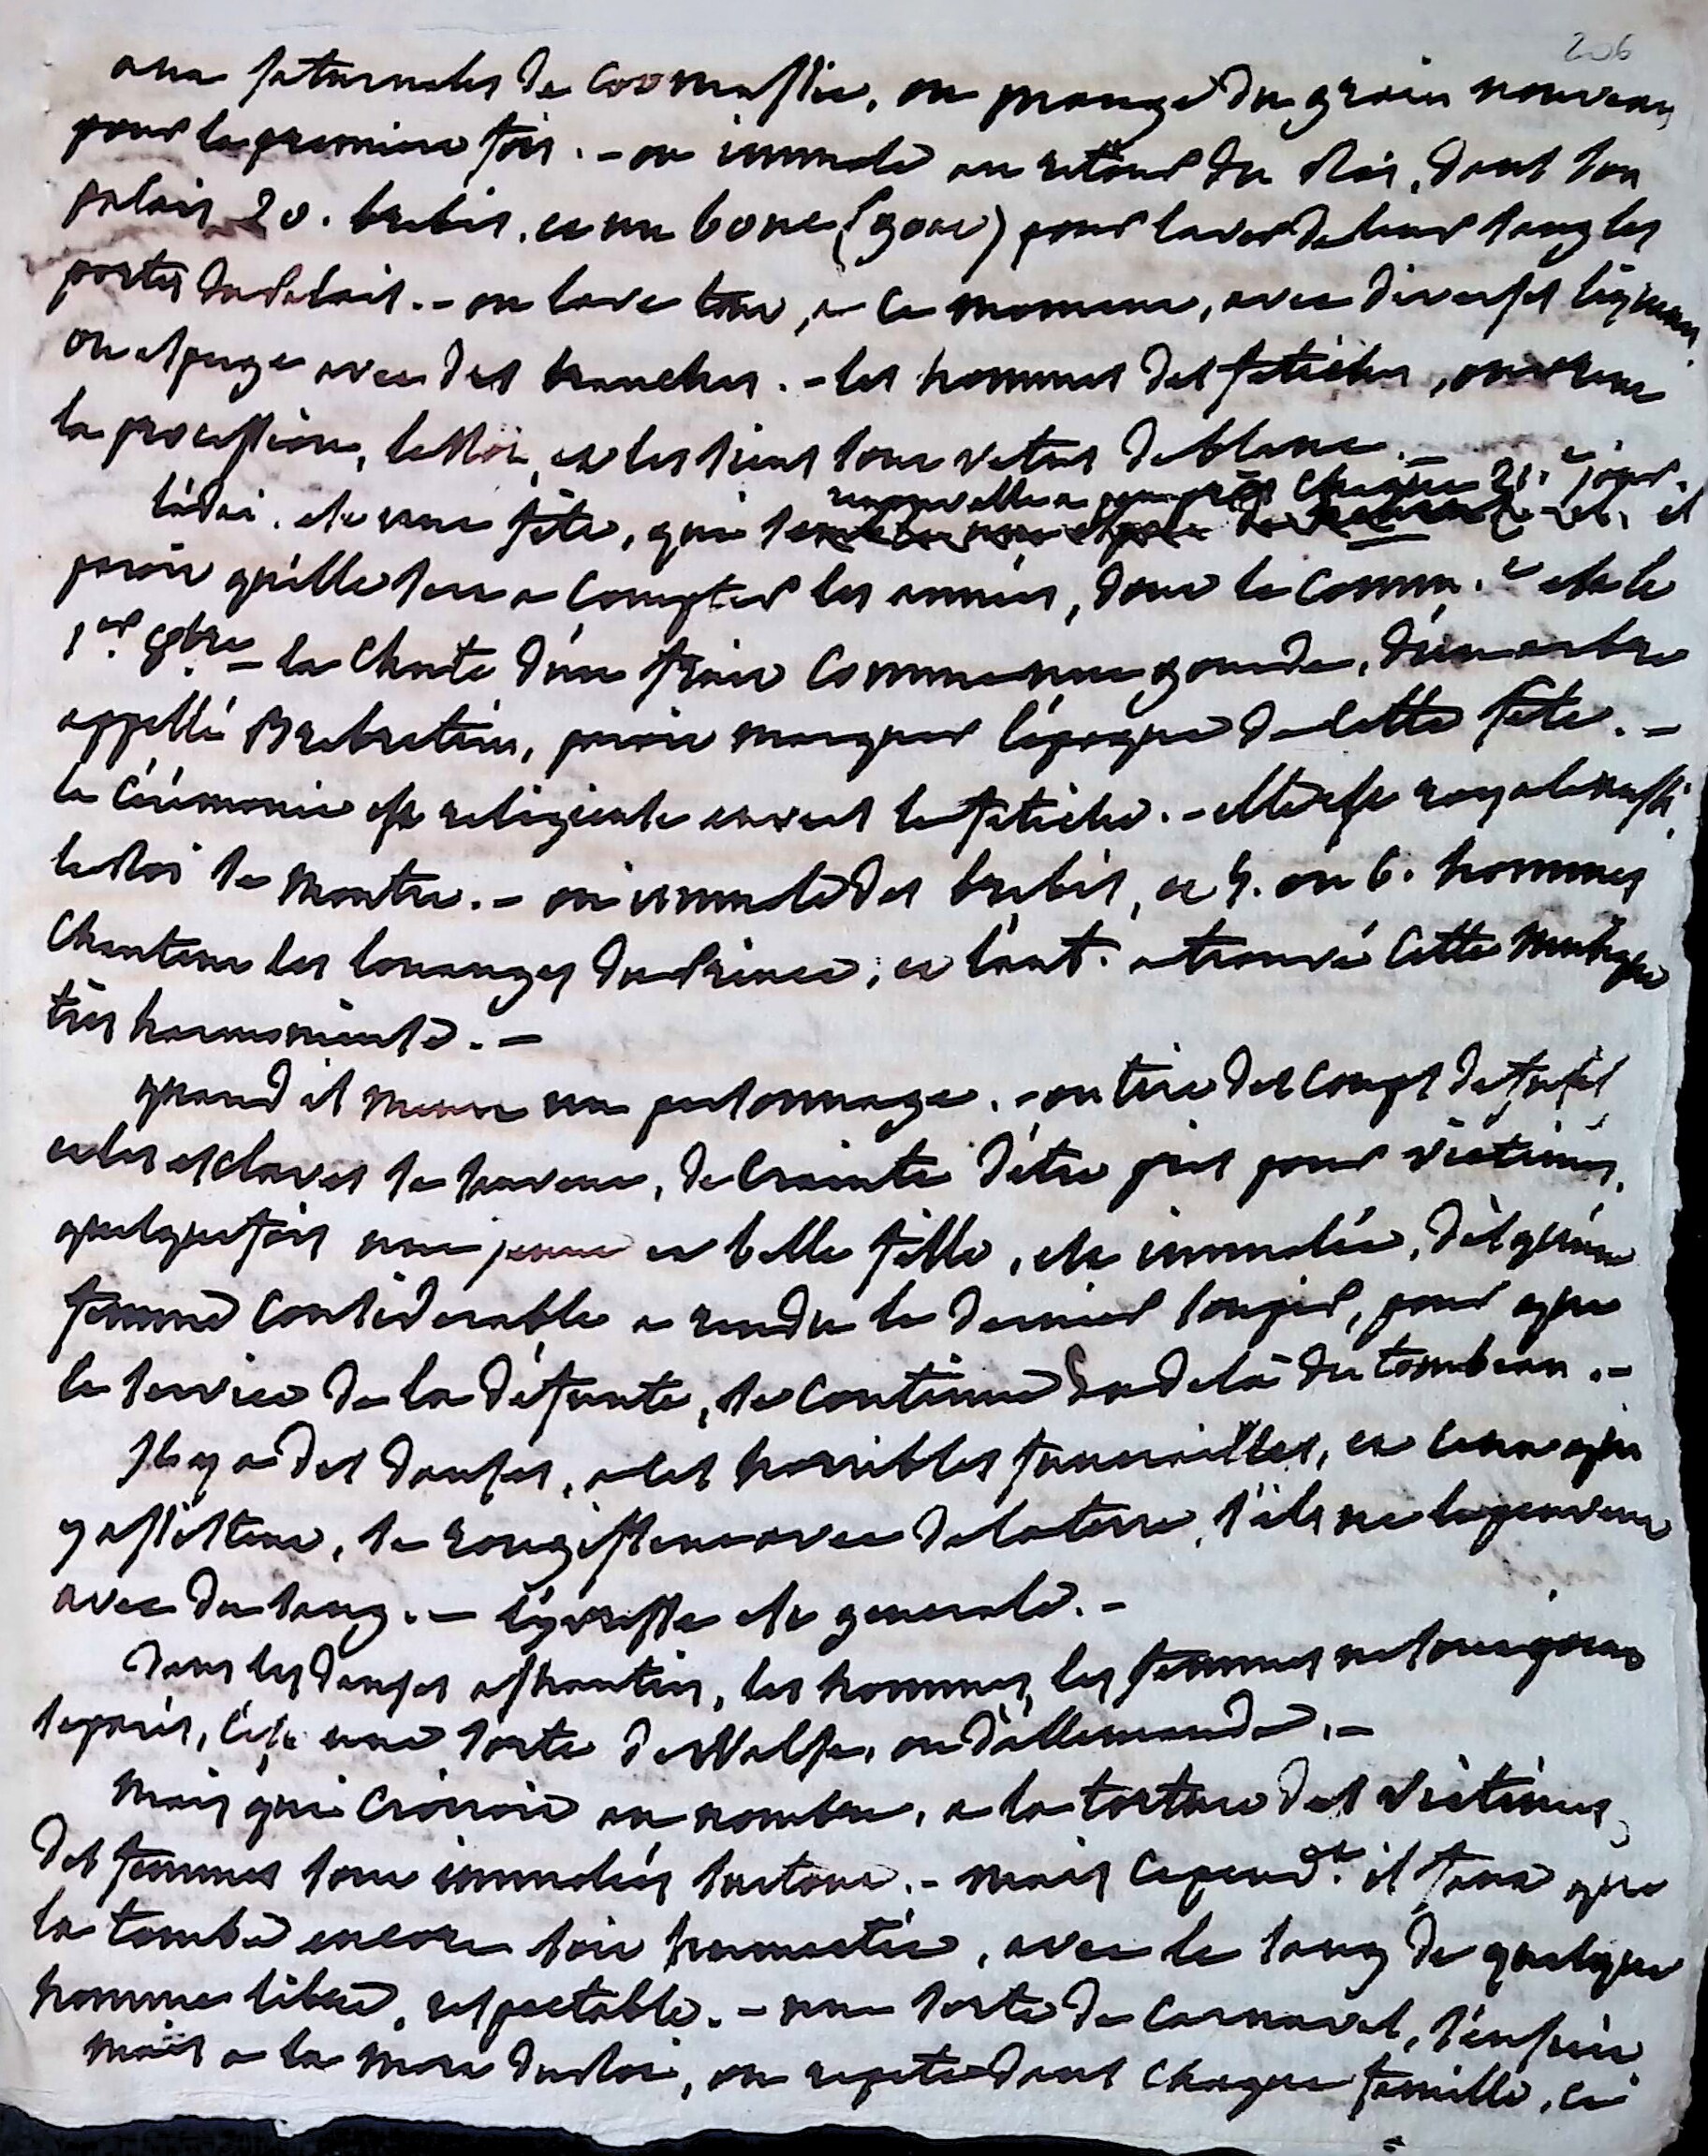 206
aux saturnales de Coomassie, on mange du grain nouveau
pour la premiere fois. - on immole au retour du Roi, dans son
palais 20. brebis, et un bouc (gour) pour laver de leur sang les
portes du Palais. - on lave tout, a ce moment, avec diverses liqueurs,
on asperge avec des branches. - les hommes des fetiches, ouvrent
la procession, le Roi, et les siens sont vetus de blanc. -
renouvelle a peu près chaque 21.e jour.
l'adai. est une fête, qui se et il
paroit qu'elle sert a compter les années, dont le comm.t est le
1er. 8bre - la chute d'un fruit comme une gourde, d'un arbre
appellé Brebretim, paroit marquer l'époque de cette fete. -
la cérémonie est religieuse envers le fetiche. - elle est royale aussi,
le Roi se montre. - on immole des brebis, et 5. ou 6. hommes
chantent les louanges du Prince, et l'aut. a trouvé cette musique
très harmonieuse. -
quand il meurt un personnage. - on tire des coups de fusil
et les esclaves se sauvent, de crainte d'être pris pour victimes.
quelquefois une jeune et belle fille, est immolée, dès qu'une
femme considerable a rendu le dernier soupir, pour que
le service de la défunte, se continue au delà du tombeau. -
Il y a des danses, a ces horribles funerailles, et ceux qui
y assistent, se rougissent avec de la terre, s'ils ne le peuvent
avec du sang. - l'yvresse est generale. -
dans les danses ashanties, les hommes, les femmes ne sont point
separés, c'est une sorte de Walse, ou d'allemande. -
Mais qui croiroit au nombre, a la torture des victimes,
des femmes sont immolées surtout. - mais cepend.t il faut que
la tombe encore soit humectée, avec le sang de quelque
homme libre, respectable. - une sorte de carnaval, s'ensuit
mais a la mort du Roi, on repete dans chaque famille, ce